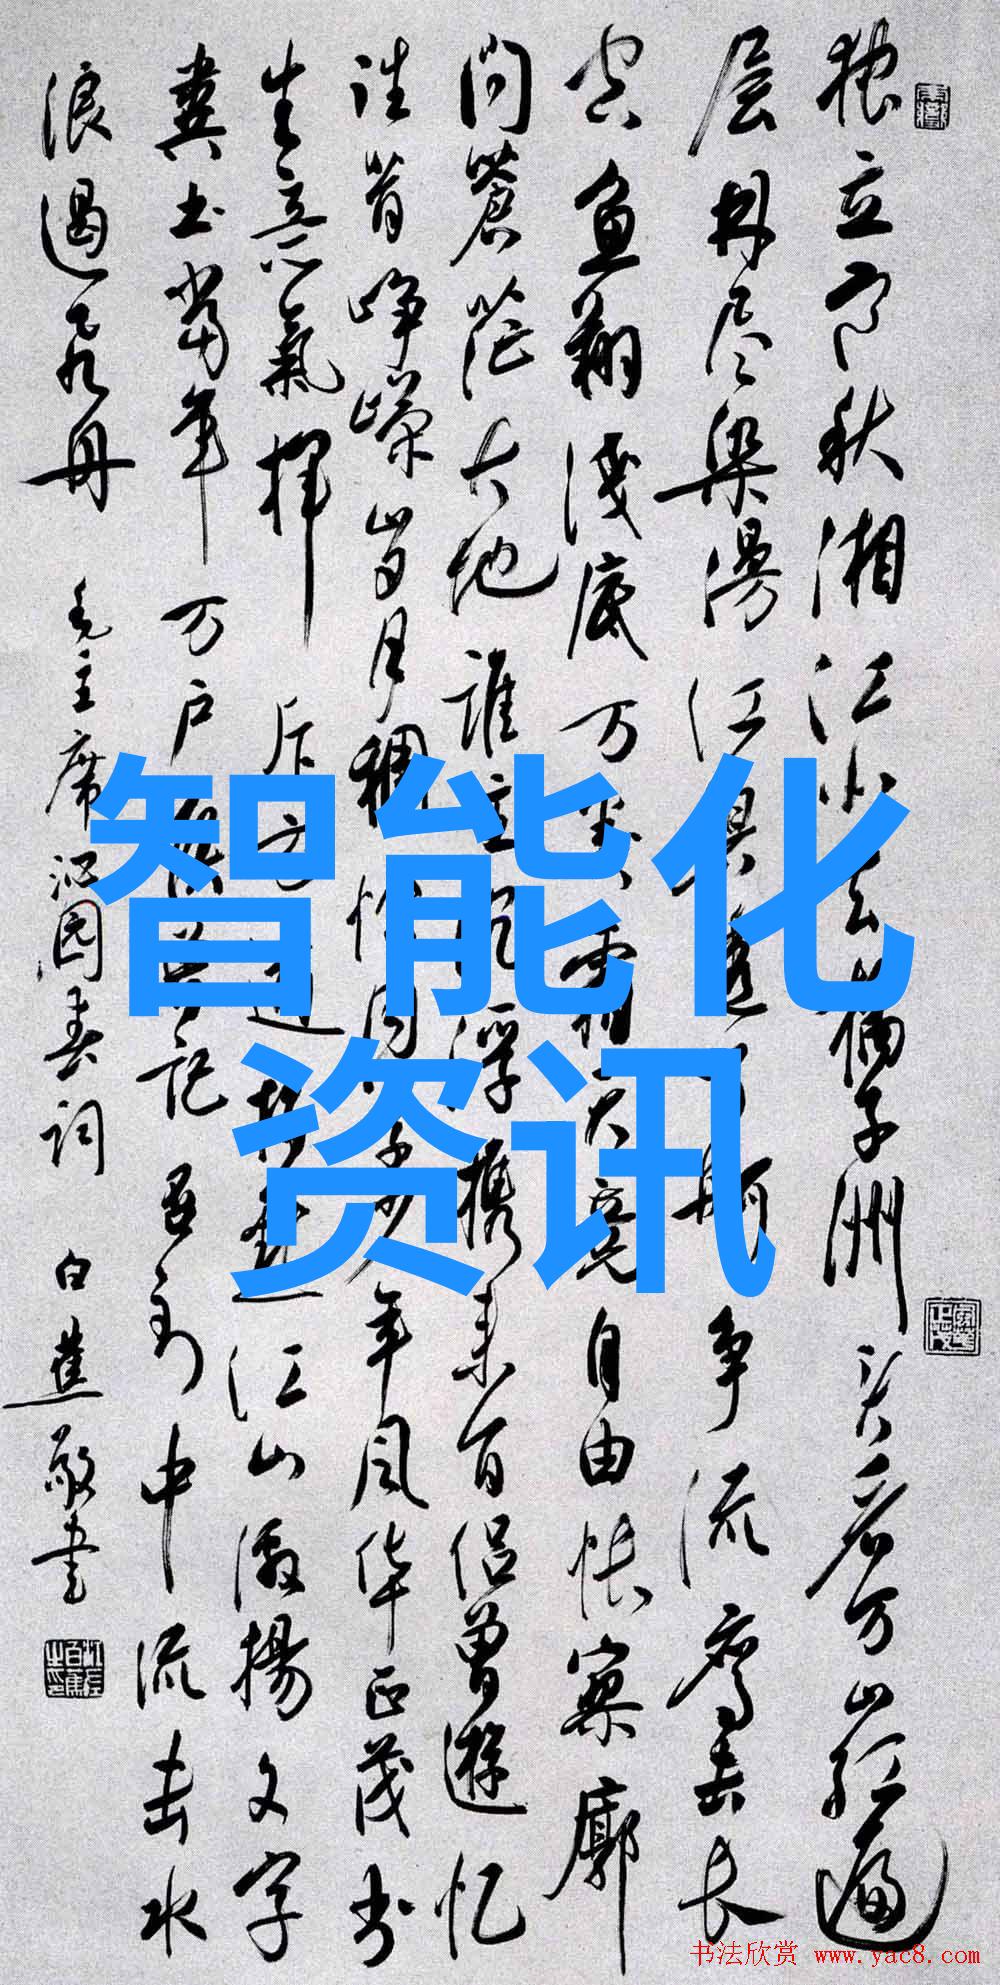 独立寒秋湘江北去橘子洲头看万山红遍
层林尽染漫江碧透百舸争流鹰击长
空鱼翔浅底万类霜天竞自由怅寥廓
问蒼茫大地誰主沉浮携来百侣曾遊忆
往昔峥嵘岁月稠恰同学少年风华正茂书
生意氣挥斥方遒指点江山激揚文字
粪土当年万户侯曾记否到中流击水
浪遏飞舟 毛主席沁园春词 白蕉敬书
智能化
资讯
书法欣赏 www.yac8.com